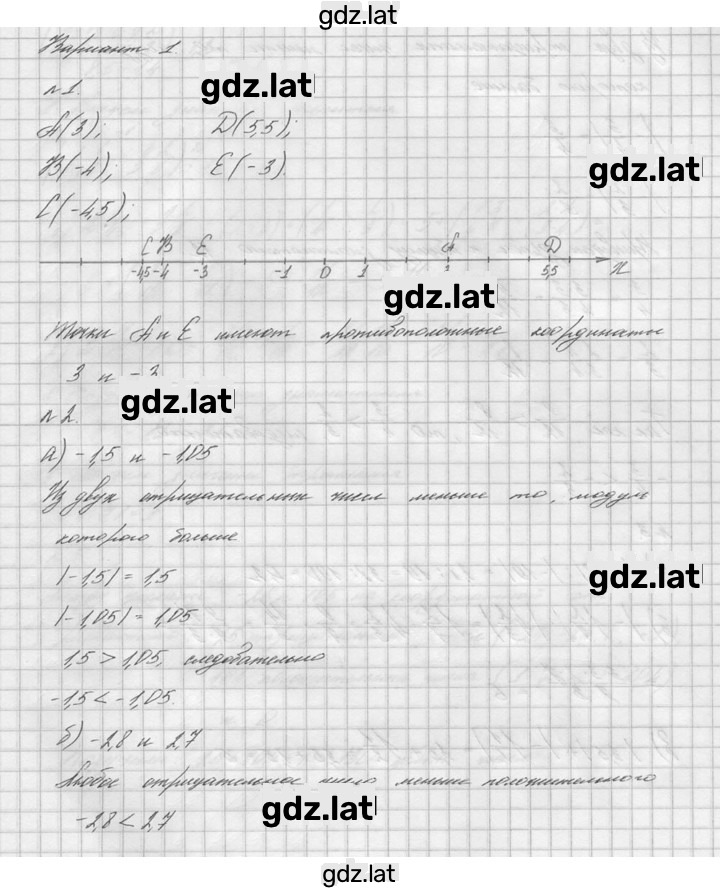 gdz.lat
Вариант 1.
gdz.lat
№1.
A(3); D(5,5);
B(-4); E(-3).
gdz.lat
C(-4,5);
C B E A D
-4,5 -4 -3 -1 0 1 3 5,5 x
gdz.lat
Точки A и E имеют противоположные координаты
3 и -3.
gdz.lat
№2.
а) -1,5 и -1,05
Из двух отрицательных чисел меньше то, модуль
которого больше
|-1,5| = 1,5
gdz.lat
|-1,05| = 1,05
1,5 > 1,05, следовательно
-1,5 < -1,05.
б) -2,8 и 2,7
Любое отрицательное число меньше положительного
gdz.lat
-2,8 < 2,7
gdz.lat